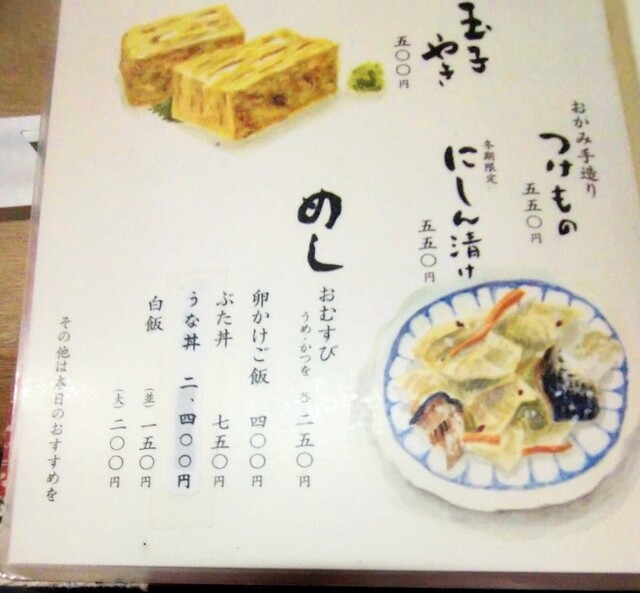 おかみ手造り
つけもの
五五〇円
冬期限定
にしん漬け
五五〇円
玉子やき
五〇〇円
めし
おむすび
うめ・かつを 各 二五〇円
卵かけご飯 四〇〇円
ぶた丼 七五〇円
うな丼 二、四〇〇円
白飯
(並) 一五〇円
(大) 二〇〇円
その他は本日のおすすめを